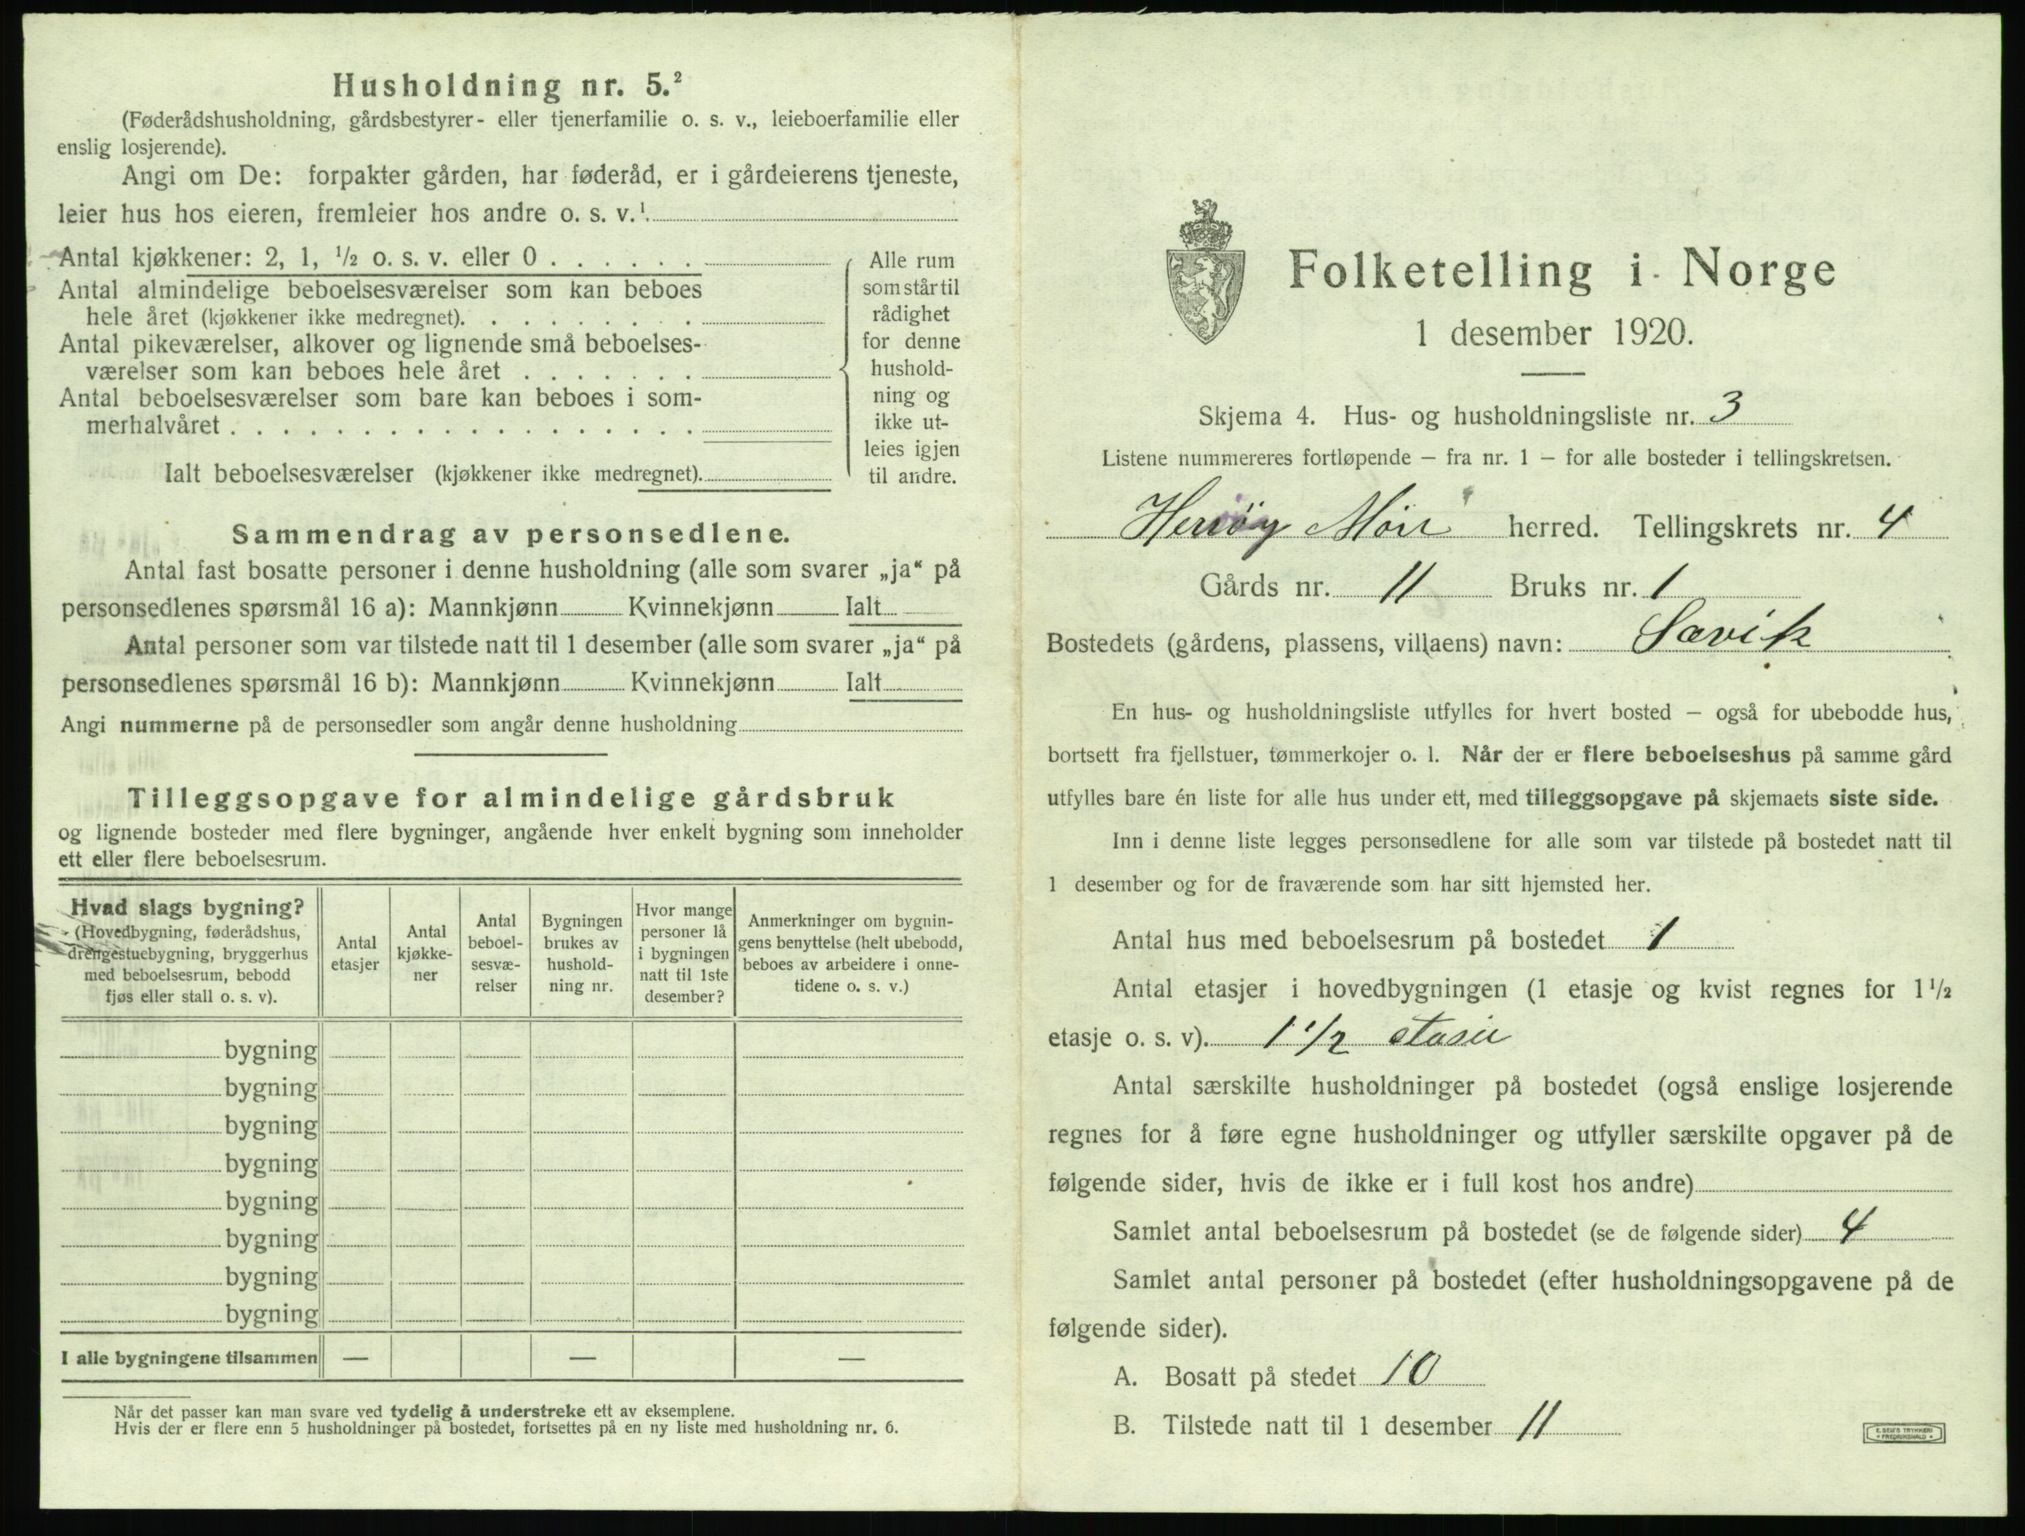 Husholdning nr. 5.²
(Føderådshusholdning, gårdsbestyrer- eller tjenerfamilie o. s. v., leieboerfamilie eller
enslig losjerende).
Angi om De: forpakter gården, har føderåd, er i gårdeierens tjeneste,
leier hus hos eieren, fremleier hos andre o. s. v.¹
Antal kjøkkener: 2, 1, ½ o. s. v. eller 0 . . . . . .
Antal almindelige beboelsesværelser som kan beboes
hele året (kjøkkener ikke medregnet). . . . . . . . .
Antal pikeværelser, alkover og lignende små beboelses-
værelser som kan beboes hele året . . . . . . .
Antal beboelsesværelser som bare kan beboes i som-
merhalvåret . . . . . . . . . . . . . . . . . .
Ialt beboelsesværelser (kjøkkener ikke medregnet).
Alle rum
som står til
rådighet
for denne
hushold-
ning og
ikke ut-
leies igjen
til andre.
Sammendrag av personsedlene.
Antal fast bosatte personer i denne husholdning (alle som svarer „ja“ på
personsedlenes spørsmål 16 a): Mannkjønn Kvinnekjønn Ialt
Antal personer som var tilstede natt til 1 desember (alle som svarer „ja“ på
personsedlenes spørsmål 16 b): Mannkjønn Kvinnekjønn Ialt
Angi nummerne på de personsedler som angår denne husholdning
Tilleggsopgave for almindelige gårdsbruk
og lignende bosteder med flere bygninger, angående hver enkelt bygning som inneholder
ett eller flere beboelsesrum.
Hvad slags bygning?
(Hovedbygning, føderådshus,
drengestuebygning, bryggerhus
med beboelsesrum, bebodd
fjøs eller stall o. s. v).
Antal
etasjer
Antal
kjøkke-
ner
Antal
beboel-
sesvæ-
relser
Bygningen
brukes av
hushold-
ning nr.
Hvor mange
personer lå
i bygningen
natt til 1ste
desember?
Anmerkninger om bygnin-
gens benyttelse (helt ubebodd,
beboes av arbeidere i onne-
tidene o. s. v.)
bygning
bygning
bygning
bygning
bygning
bygning
bygning
bygning
I alle bygningene tilsammen — — —
Når det passer kan man svare ved tydelig å understreke ett av eksemplene.
Hvis der er flere enn 5 husholdninger på bostedet, fortsettes på en ny liste med husholdning nr. 6.
Folketelling i Norge
1 desember 1920.
Skjema 4. Hus- og husholdningsliste nr. 3
Listene nummereres fortløpende – fra nr. 1 – for alle bosteder i tellingskretsen.
Herröy Möre herred. Tellingskrets nr. 4
Gårds nr. 11 Bruks nr. 1
Bostedets (gårdens, plassens, villaens) navn: Sævik
En hus- og husholdningsliste utfylles for hvert bosted – også for ubebodde hus,
bortsett fra fjellstuer, tømmerkojer o. l. Når der er flere beboelseshus på samme gård
utfylles bare én liste for alle hus under ett, med tilleggsopgave på skjemaets siste side.
Inn i denne liste legges personsedlene for alle som var tilstede på bostedet natt til
1 desember og for de fraværende som har sitt hjemsted her.
Antal hus med beboelsesrum på bostedet 1
Antal etasjer i hovedbygningen (1 etasje og kvist regnes for 1½
etasje o. s. v). 1 1/2 etasie
Antal særskilte husholdninger på bostedet (også enslige losjerende
regnes for å føre egne husholdninger og utfyller særskilte opgaver på de
følgende sider, hvis de ikke er i full kost hos andre)
Samlet antal beboelsesrum på bostedet (se de følgende sider) 4
Samlet antal personer på bostedet (efter husholdningsopgavene på de
følgende sider).
A. Bosatt på stedet 10
B. Tilstede natt til 1 desember 11
E. SEM'S TRYKKERI
FREDRIKSHALD